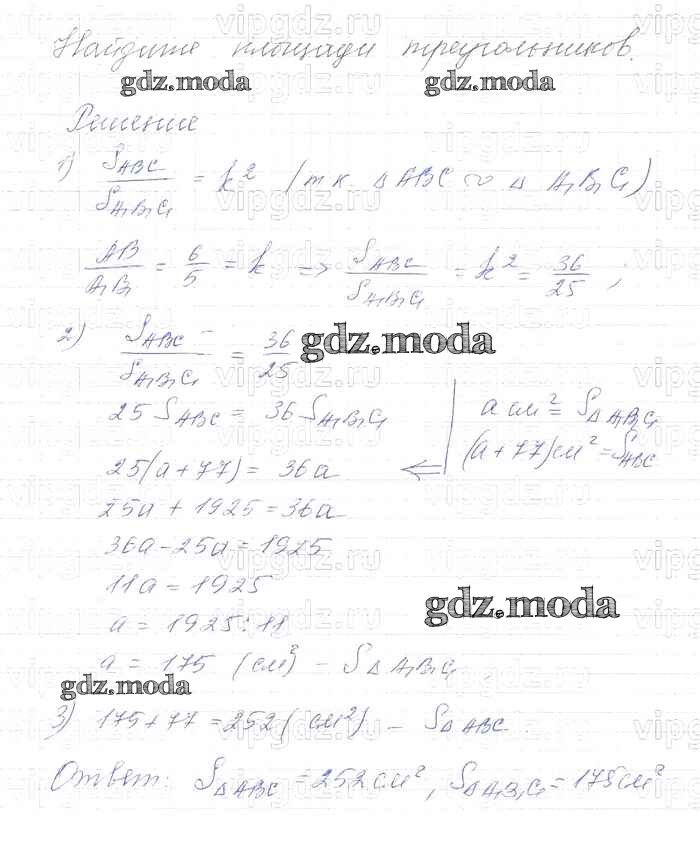 Найдите площади треугольников.
gdz.moda gdz.moda
Решение
1) S_ABC / S_A₁B₁C₁ = k² (т.к. △ABC ∾ △ A₁B₁C₁)
AB / A₁B₁ = 6/5 = k => S_ABC / S_A₁B₁C₁ = k² = 36/25 ;
2) S_ABC / S_A₁B₁C₁ = 36/25
gdz.moda
25 S_ABC = 36 S_A₁B₁C₁ | a см² = S_△A₁B₁C₁
25(a+77) = 36a <= (a+77)см² = S_ABC
25a + 1925 = 36a
36a - 25a = 1925
11a = 1925
a = 1925 : 11
gdz.moda
a = 175 (см²) – S_△A₁B₁C₁
gdz.moda
3) 175+77=252 (см²) – S_△ABC.
Ответ: S_△ABC = 252 см², S_△A₁B₁C₁ = 175 см²
vipgdz.ru